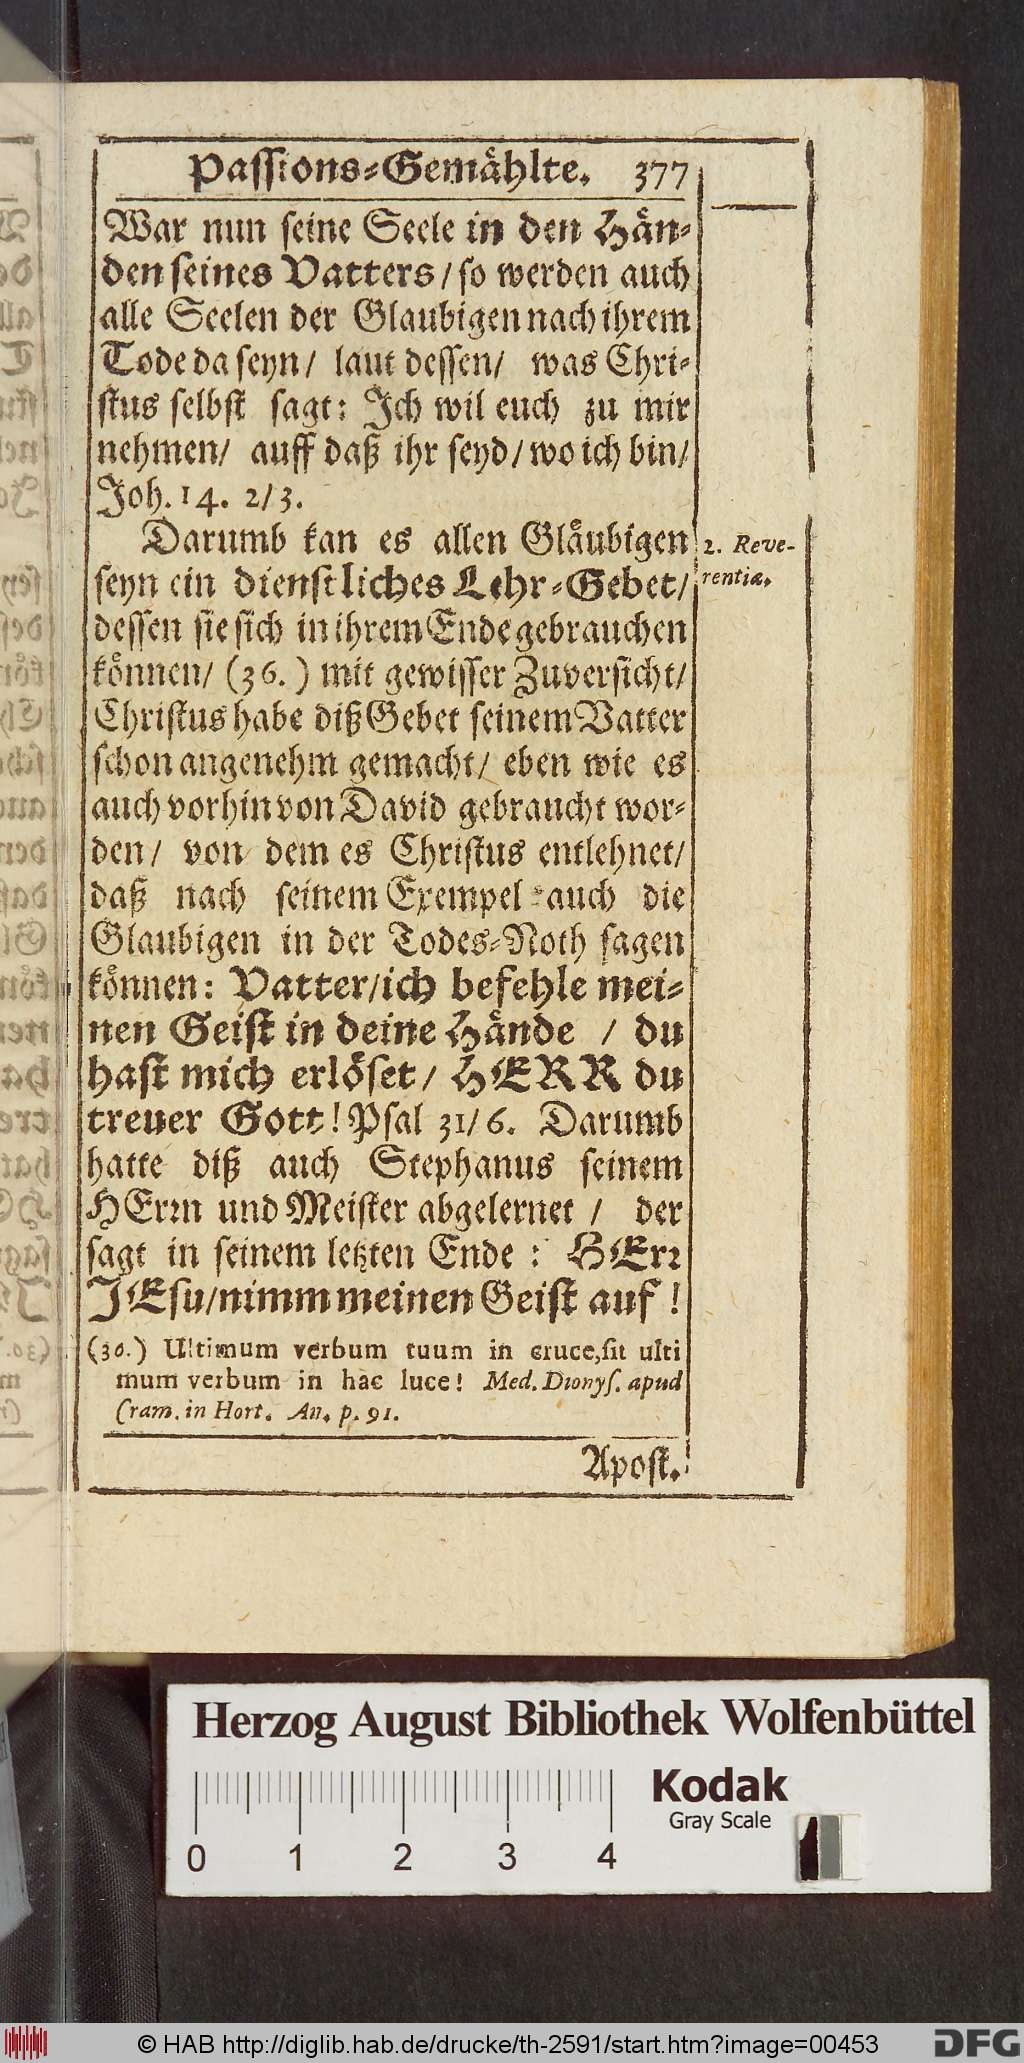 Passions-Gemählte. 377
War nun seine Seele in den Hän-
den seines Vatters/ so werden auch
alle Seelen der Glaubigen nach ihrem
Tode da seyn/ laut dessen/ was Chri-
stus selbst sagt: Ich wil euch zu mir
nehmen/ auff daß ihr seyd/ wo ich bin/
Joh. 14. 2/3.
Darumb kan es allen Gläubigen
seyn ein dienstliches Lehr-Gebet/
dessen sie sich in ihrem Ende gebrauchen
können/ (36.) mit gewisser Zuversicht/
Christus habe diß Gebet seinem Vatter
schon angenehm gemacht/ eben wie es
auch vorhin von David gebraucht wor-
den/ von dem es Christus entlehnet/
daß nach seinem Exempel auch die
Glaubigen in der Todes-Noth sagen
können: Vatter/ich befehle mei-
nen Geist in deine Hände / du
hast mich erlöset/ HERR du
treuer Gott! Psal 31/6. Darumb
hatte diß auch Stephanus seinem
HErrn und Meister abgelernet / der
sagt in seinem letzten Ende : HErr
JEsu/nimm meinen Geist auf !
(36.) Ultimum verbum tuum in cruce, sit ulti
mum verbum in hac luce! Med. Dionys. apud
Cram. in Hort. An. p. 91.
Apost.
2. Reve-
rentiæ.
Herzog August Bibliothek Wolfenbüttel
Kodak
Gray Scale
0 1 2 3 4
© HAB http://diglib.hab.de/drucke/th-2591/start.htm?image=00453
DFG